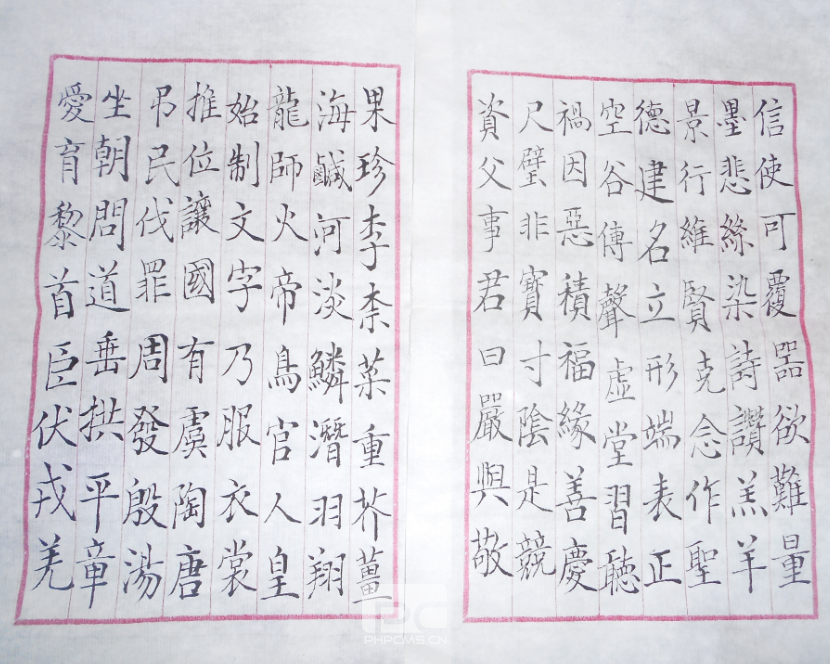 信使可覆器欲難量
墨悲絲染詩讚羔羊
景行維賢克念作聖
德建名立形端表正
空谷傳聲虛堂習聽
禍因惡積福緣善慶
尺璧非寶寸陰是競
資父事君曰嚴與敬
果珍李柰菜重芥薑
海鹹河淡鱗潛羽翔
龍師火帝鳥官人皇
始制文字乃服衣裳
推位讓國有虞陶唐
吊民伐罪周發殷湯
坐朝問道垂拱平章
愛育黎首臣伏戎羌
PC
PHPCMS.CN